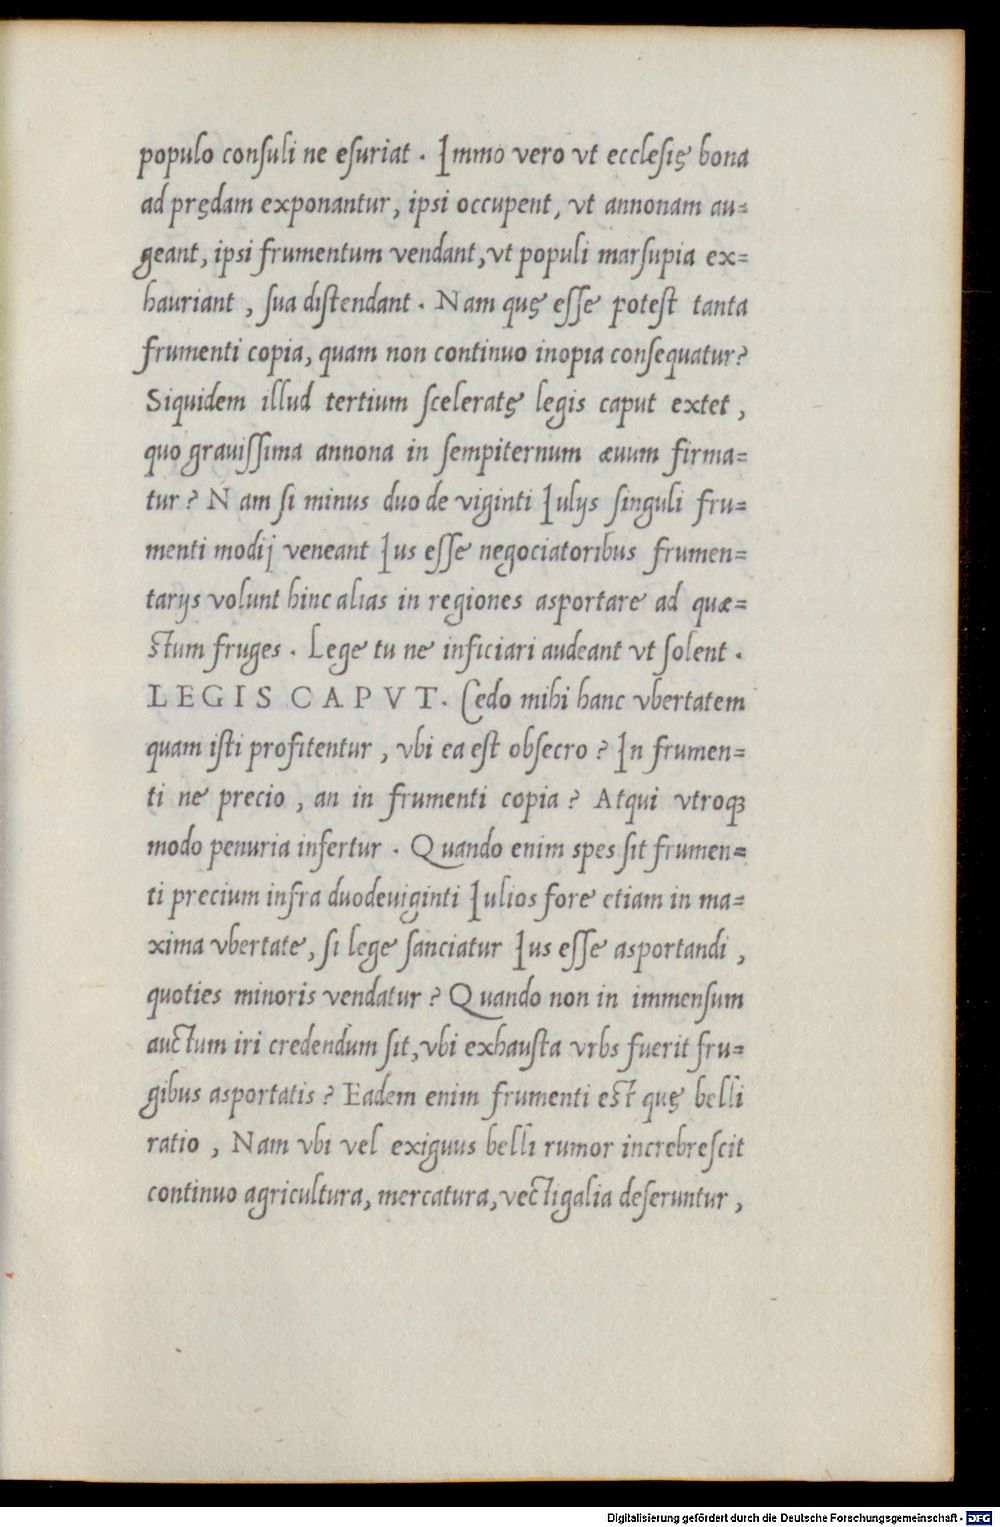 populo conſuli ne eſuriat . Immo vero vt eccleſię bona
ad prędam exponantur, ipsi occupent, vt annonam au=
geant, ipsi frumentum vendant, vt populi marſupia ex=
hauriant , ſua diſtendant . Nam quę eſſe poteſt tanta
frumenti copia, quam non continuo inopia conſequatur?
Siquidem illud tertium ſceleratę legis caput extet ,
quo grauiſſima annona in ſempiternum æuum firma=
tur ? Nam ſi minus duo de viginti Iulijs ſinguli fru=
menti modij veneant Ius eſſe negociatoribus frumen=
tarijs volunt hinc alias in regiones asportare ad quæ=
ſtum fruges . Lege tu ne inficiari audeant vt ſolent .
LEGIS CAPVT. Cedo mihi hanc vbertatem
quam iſti profitentur , vbi ea eſt obſecro ? In frumen=
ti ne precio , an in frumenti copia ? Atqui vtroqꝫ
modo penuria infertur . Quando enim spes ſit frumen=
ti precium infra duodeuiginti Iulios fore etiam in ma=
xima vbertate, ſi lege ſanciatur Ius eſſe asportandi ,
quoties minoris vendatur ? Quando non in immenſum
auctum iri credendum ſit, vbi exhauſta vrbs fuerit fru=
gibus asportatis ? Eadem enim frumenti eſt quę belli
ratio , Nam vbi vel exiguus belli rumor increbreſcit
continuo agricultura, mercatura, vectigalia deſeruntur ,
Digitalisierung gefördert durch die Deutsche Forschungsgemeinschaft - DFG